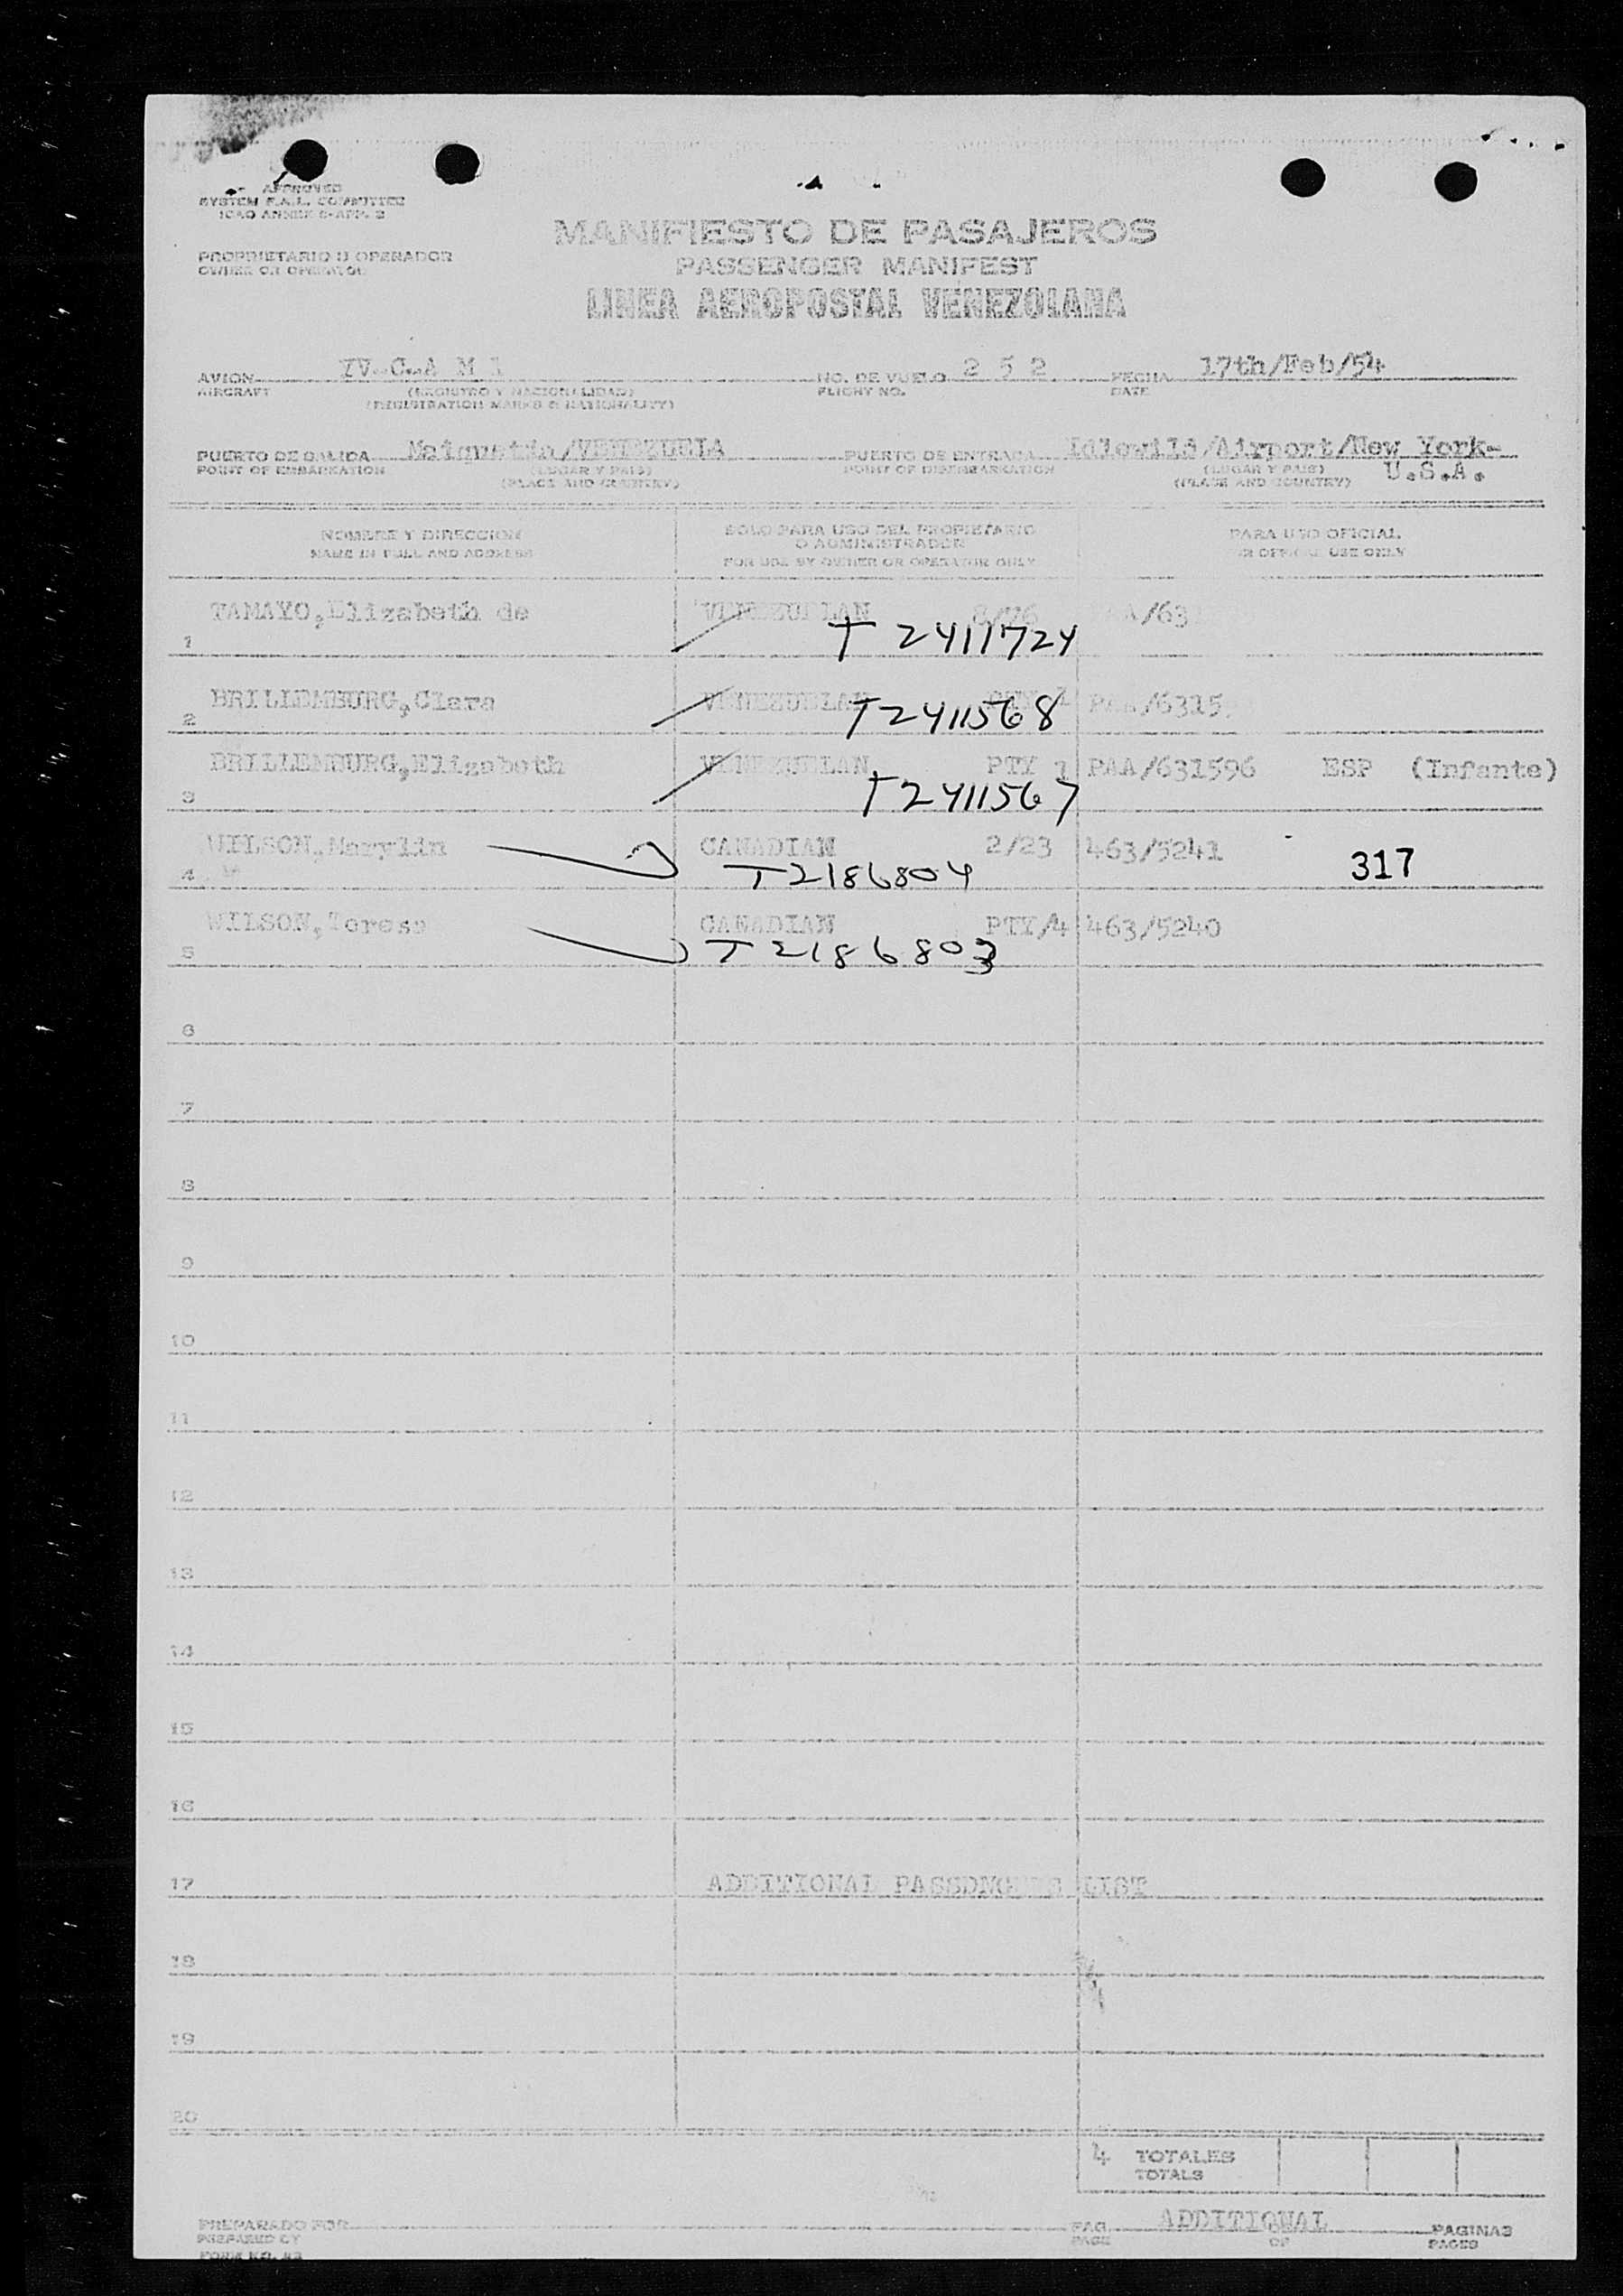 APPROVED
SYSTEM F.A.L. COMMITTEE
ICAO ANNEX 9-APP. 2
MANIFIESTO DE PASAJEROS
PASSENGER MANIFEST
LINEA AEROPOSTAL VENEZOLANA
PROPRIETARIO U OPERADOR
OWNER OR OPERATOR
AVION YV-C-A M 1 NO. DE VUELO 2 5 2 FECHA 17th/Feb/54
AIRCRAFT (REGISTRO Y NACIONALIDAD) FLIGHT NO. DATE
(REGISTRATION MARKS & NATIONALITY)
PUERTO DE SALIDA Maiquetia/VENEZUELA PUERTO DE ENTRADA Idlewild/Airport/New York-
POINT OF EMBARKATION (LUGAR Y PAIS) POINT OF DISEMBARKATION (LUGAR Y PAIS) U.S.A.
(PLACE AND COUNTRY) (PLACE AND COUNTRY)
NOMBRE Y DIRECCION SOLO PARA USO DEL PROPIETARIO PARA USO OFICIAL
NAME IN FULL AND ADDRESS O ADMINISTRADOR OFFICIAL USE ONLY
FOR USE BY OWNER OR OPERATOR ONLY
TAMAYO,Elizabeth de VENEZUELAN /63
1 T 2411724
BRILLEMBURG,Clara VENEZUELAN PAA/6315
2 T2411568
BRILLEMBURG,Elizabeth VENEZUELAN PTY 1 PAA/631596 ESP (Infante)
3 T2411567
WILSON,Marylin CANADIAN 2/23 463/5241
4 T2186804 317
WILSON,Teresa CANADIAN PTY/4 463/5240
5 T2186803
6
7
8
9
10
11
12
13
14
15
16
17 ADDITIONAL PASSDNG S LIST
18
19
20
4 TOTALES
TOTALS
PREPARADO POR PAG. ADDITIONAL PAGINAS
PREPARED BY PAGE OF PAGES
FORM NO. 43